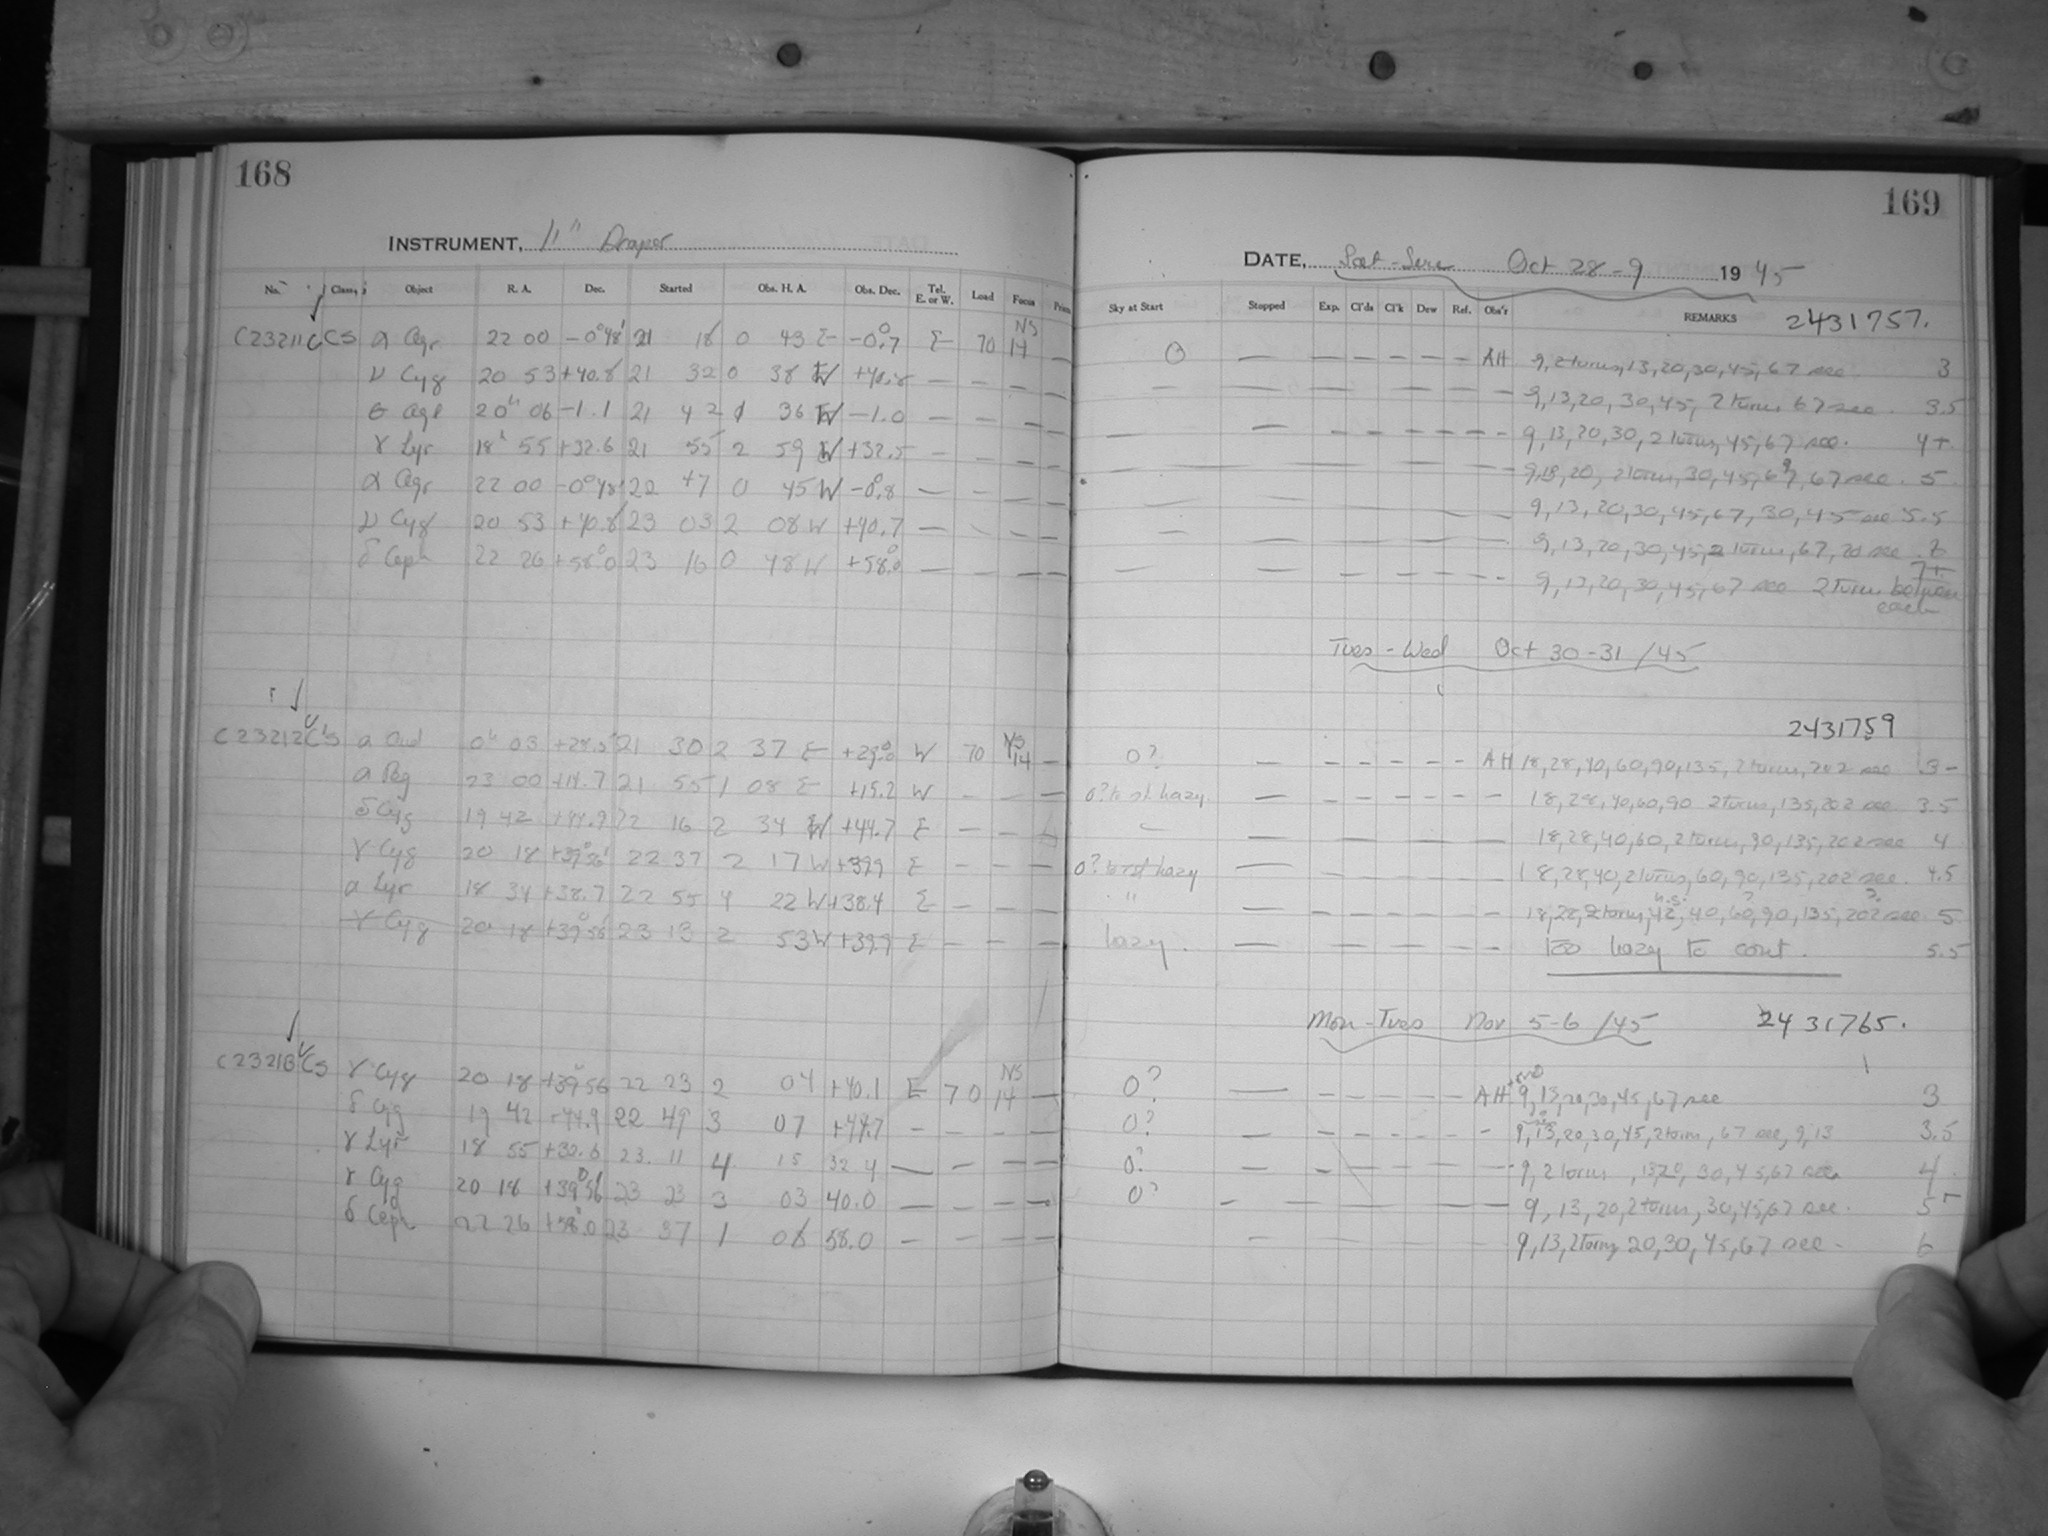 168
INSTRUMENT, 11" Draper
No. Class Object R. A. Dec. Started Obs. H. A. Obs. Dec. Tel. E. or W. Load Focus
C23211 CS α Aqr 22 00 -0°48' 21 18 0 43 E -0°.7 E 70 NS 14 —
ν Cyg 20 53 +40.8 21 32 0 38 W +40.8 — — — —
θ Aql 20h 06 -1.1 21 42 1 36 W -1.0 — — — —
γ Lyr 18h 55 +32.6 21 55 2 59 W +32.5 — — — —
α Aqr 22 00 -0°48' 22 47 0 45 W -0°.8 — — — —
ν Cyg 20 53 +40.8 23 03 2 08 W +40.7 — — — —
δ Ceph 22 26 +58°.0 23 16 0 48 W +58°.0 — — — —
C23212 CS α And 0h 03 +28.5 21 30 2 37 E +29°.0 W 70 NS 14 —
α Peg 23 00 +14.7 21 55 1 08 E +15.2 W — — —
δ Cyg 19 42 +44.9 22 16 2 34 W +44.7 E — —
γ Cyg 20 18 +39°56' 22 37 2 17 W +39.9 E — — —
α Lyr 18 34 +38.7 22 55 4 22 W +38.4 E — — —
γ Cyg 20 18 +39°56' 23 13 2 53 W +39.9 E — — —
C23213 CS γ Cyg 20 18 +39°56 22 23 2 04 +40.1 E 70 NS 14 —
δ Cyg 19 42 +44.9 22 49 3 07 +44.7 — — — —
γ Lyr 18 55 +32.6 23 11 4 15 32.4 — — — —
γ Cyg 20 18 +39°56 23 23 3 03 40.0 — — — —
δ Ceph 22 26 +58°.0 23 37 1 08 58.0 — — — —
169
DATE, Oct 28-9 1945
Sky at Start Stopped Exp. Cl'ds Cl'k Dew Ref. Obs'r REMARKS 2431757.
0 — — — — — — AH 9, 2 turns, 13, 20, 30, 45, 67 sec. 3
— — — — — — — 9, 13, 20, 30, 45, 2 turns 67 sec. 3.5
— — — — — — — 9, 13, 20, 30, 2 turns, 45, 67 sec. 4+
— — — — — — — 20, 2 turns, 30, 45, 67 sec. 5
— — — — — — — 9, 13, 20, 30, 45, 67, 30, 45 sec 5.5
— — — — — — — 9, 13, 20, 30, 45, 2 turns, 67, 20 sec. 6
— — — — — — — 9, 13, 20, 30, 45, 67 sec 2 turns between each 7+
Tues - Wed Oct 30-31 /45
2431759
0? — — — — — — AH 18, 28, 40, 60, 90, 135, 2 turns, 202 sec 3-
0? to sl hazy. — — — — — — — 18, 28, 40, 60, 90 2 turns, 135, 202 sec. 3.5
— — — — — — — 18, 28, 40, 60, 2 turns, 90, 135, 202 sec 4
0? to sl hazy — — — — — — — 18, 28, 40, 2 turns, 60, 90, 135, 202 sec. 4.5
" — — — — — — — 18, 28, 2 turns, 42, 40, 60, 90, 135, 202 sec. 5
hazy. — — — — — — — Too hazy to cont. 5.5
Mon - Tues Nov 5-6 /45 2431765.
0? — — — — — — AH 9, 13, 20, 30, 45, 67 sec 3
0? — — — — — — — 9, 13, 20, 30, 45, 2 turns, 67 sec, 9, 13 3.5
0? — — — — — — — 9, 2 turns, 13, 20, 30, 45, 67 sec. 4.
0? — — — — — — — 9, 13, 20, 2 turns, 30, 45, 67 sec. 5
— — — — — — — 9, 13, 2 turns 20, 30, 45, 67 sec - 6